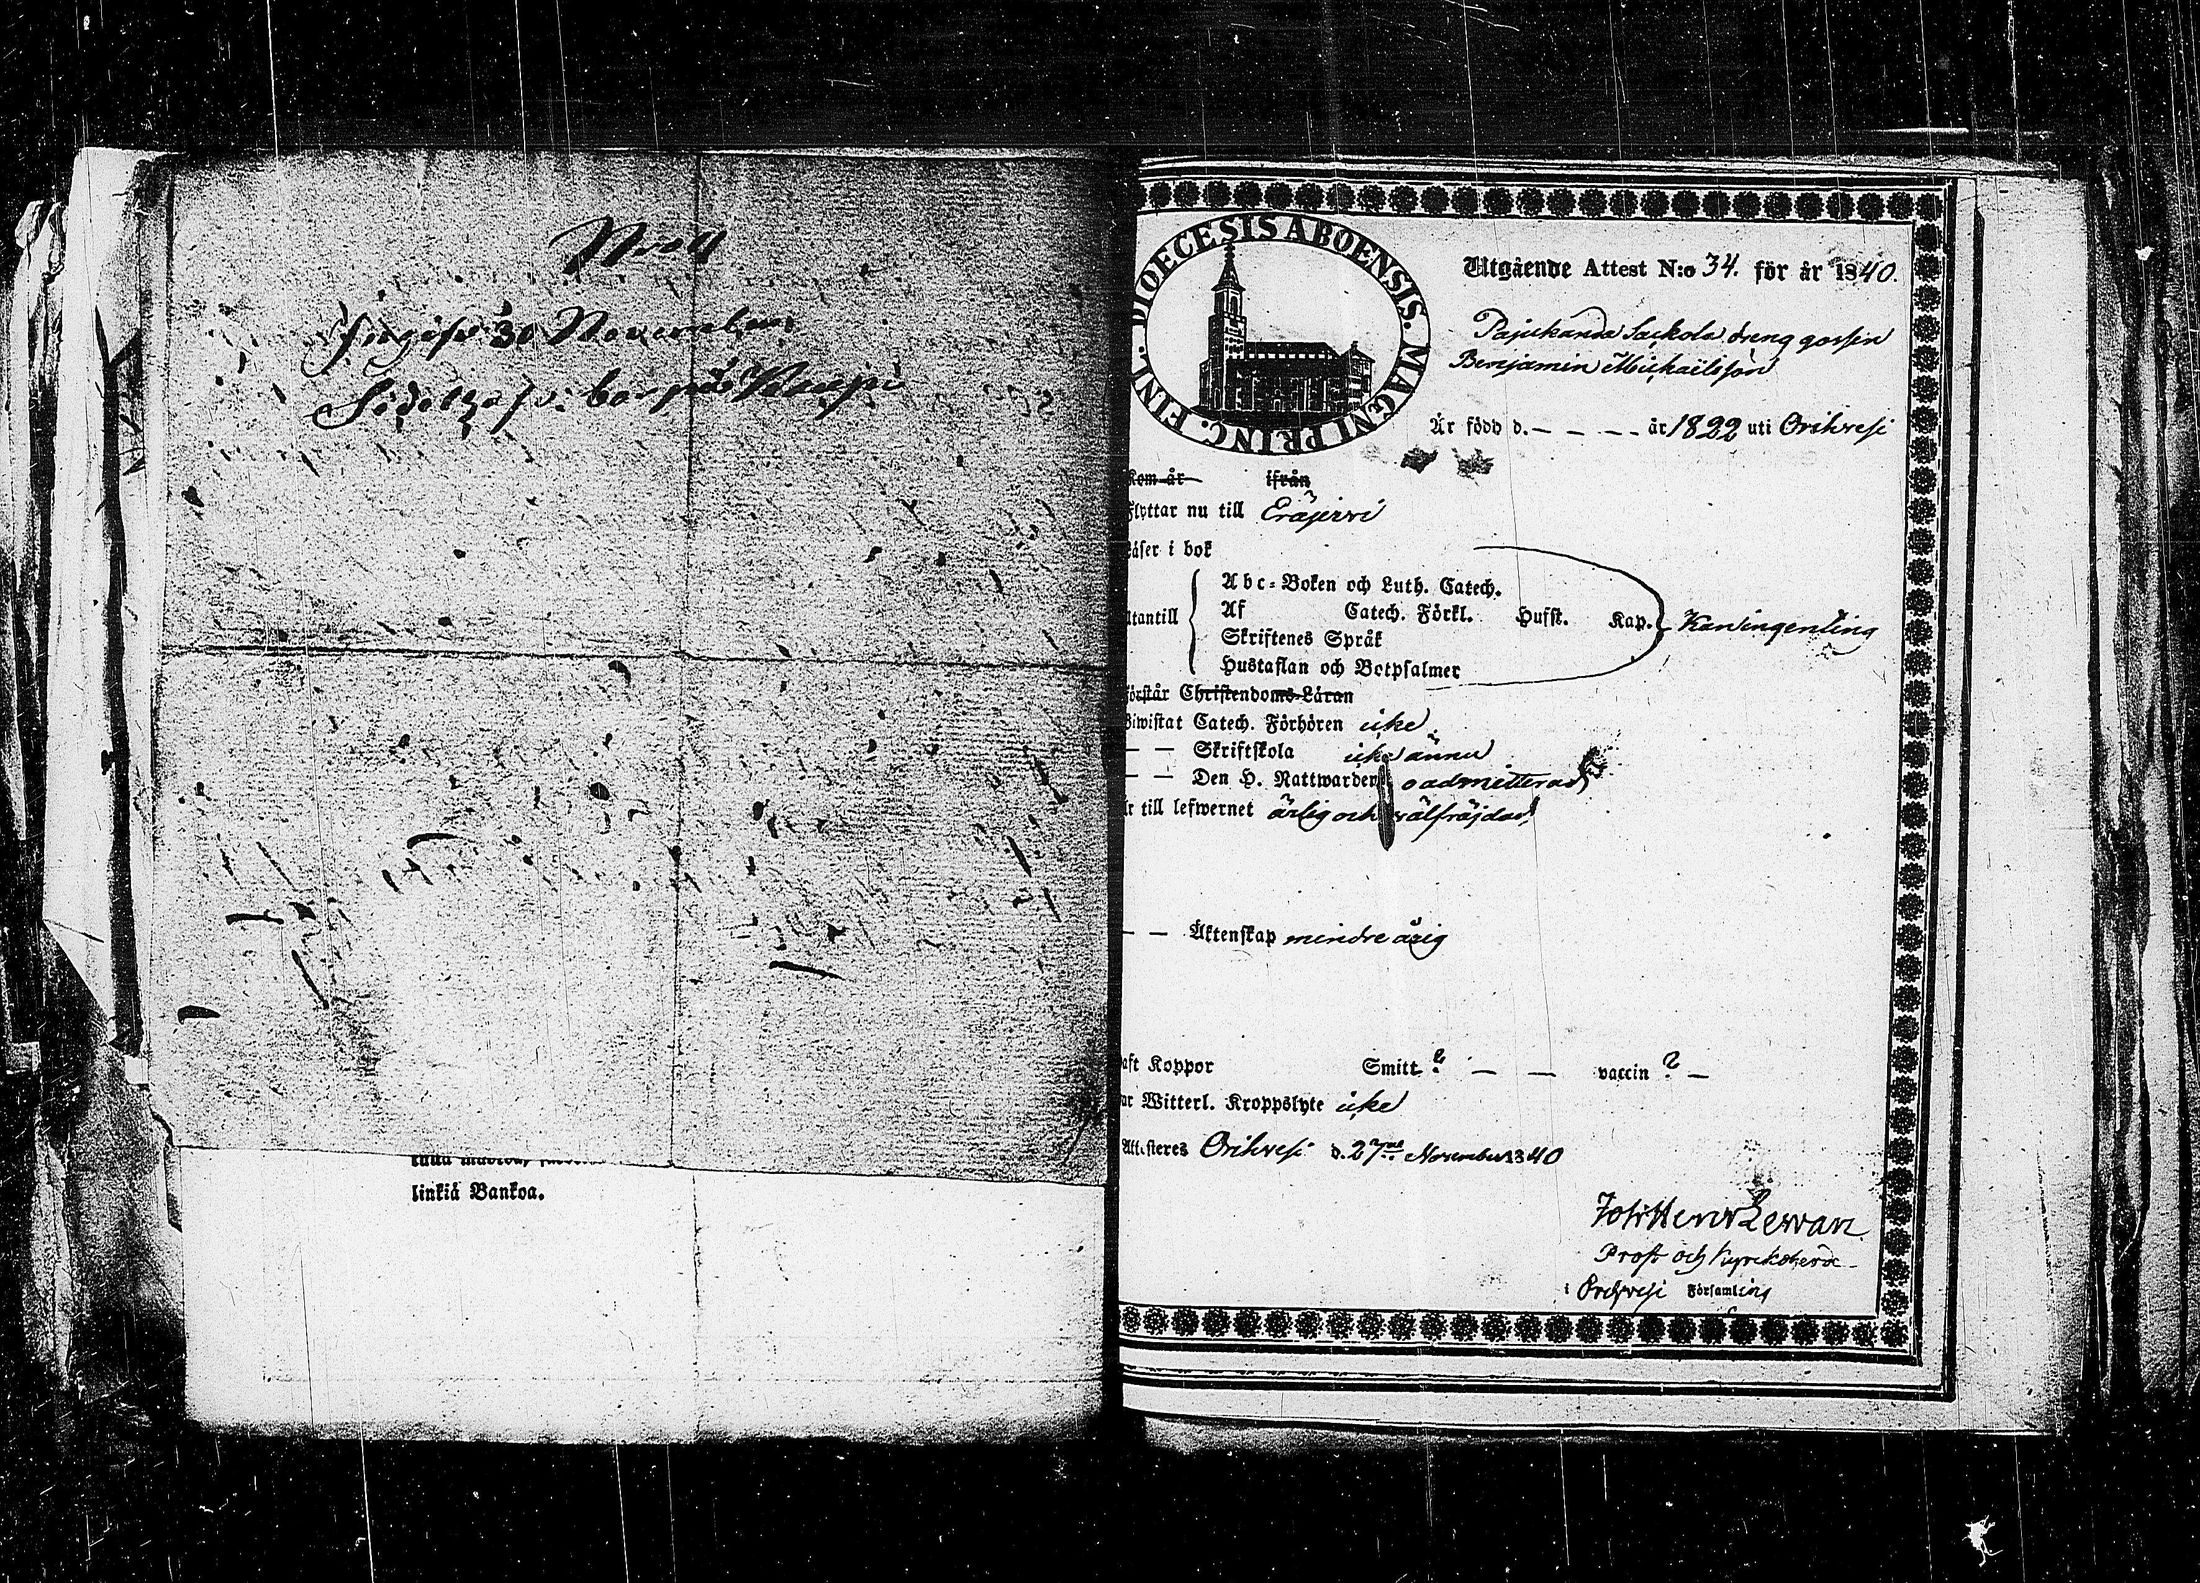 Ingifv. 30 November
linkiä Bankoa.
DIOECESIS ABOENSIS. MAGNI PRINC. FINL.
Utgående Attest N:o 34. för år 1840.
Pajukanda Sackola dreng gossen
Benjamin Michaëlsson
Är född d. – – – – år 1822 uti Orihvesi
Kom år ifrån
Flyttar nu till Eräjervi
Läser i bok
Abc-Boken och Luth. Catech.
Utantill Af Catech. Förkl. Husst. Kap.
Skriftenes Språk
Hustaflan och Botpsalmer
Förstår Christendoms-Läran
Biwistat Catech. Förhören icke
— — Skriftskola icke ännu
— — Den H. Nattwarden oadmitterad
är till lefwernet ärlig och välfräjdad
— — Äktenskap mindre årig
haft Koppor Smitt ? — — vaccin ? —
har Witterl. Kroppslyte icke
Attesteres Orihvesi d. 27 November 1840
Joh Henr Levan
Prost och Kyrckoherde
i Orihvesi Församling